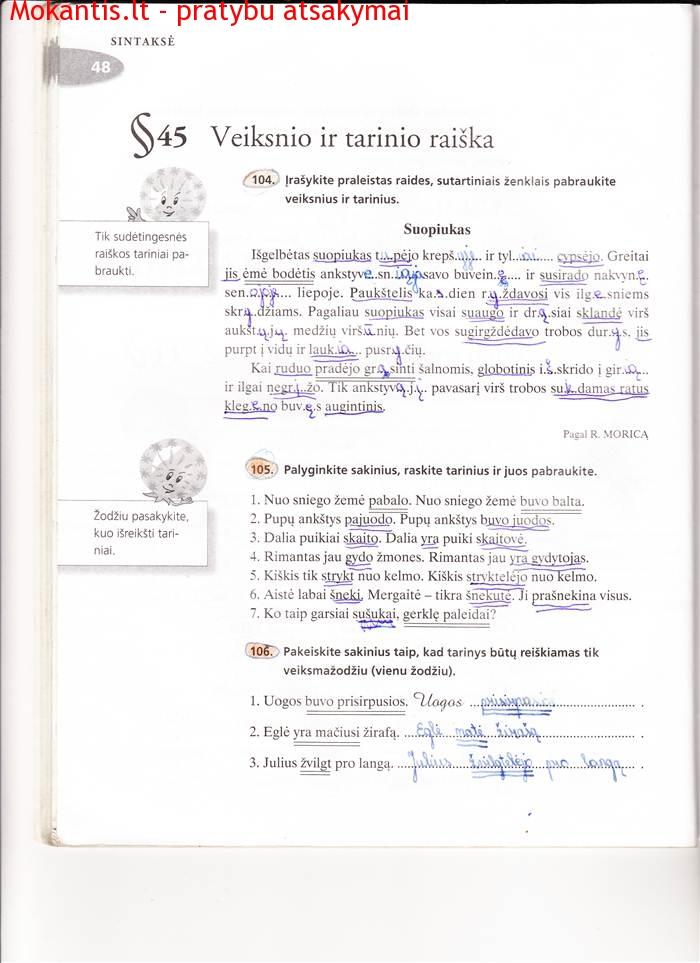 Mokantis.lt - pratybu atsakymai
SINTAKSĖ
48
§45 Veiksnio ir tarinio raiška
104. Įrašykite praleistas raides, sutartiniais ženklais pabraukite
veiksnius ir tarinius.
Tik sudėtingesnės
raiškos tariniai pa-
braukti.
Suopiukas
Išgelbėtas suopiukas t..u..pėjo krepš..yje.. ir tyl...iai...... cypsėjo. Greitai
jis ėmė bodėtis ankstyve..sn..iąja savo buvein..e.... ir susirado nakvyn..ę..
sen..oje.... liepoje. Paukštelis ka..s..dien r..y..ždavosi vis ilg..e..sniems
skr..y..džiams. Pagaliau suopiukas visai suaugo ir dr..ą..siai sklandė virš
aukšt..ų..jų.. medžių virš..ū..nių. Bet vos sugirgždėdavo trobos dur..y..s, jis
purpt į vidų ir lauk..ia... pusr..y..čių.
Kai ruduo pradėjo gr..ą..sinti šalnomis, globotinis i..š..skrido į gir..ią...
ir ilgai negr..į..žo. Tik ankstyv..ą..j..į.. pavasarį virš trobos su..k..damas ratus
kleg..e..no buv..ę..s augintinis.
Pagal R. MORICĄ
105. Palyginkite sakinius, raskite tarinius ir juos pabraukite.
Žodžiu pasakykite,
kuo išreikšti tari-
niai.
1. Nuo sniego žemė pabalo. Nuo sniego žemė buvo balta.
2. Pupų ankštys pajuodo. Pupų ankštys buvo juodos.
3. Dalia puikiai skaito. Dalia yra puiki skaitovė.
4. Rimantas jau gydo žmones. Rimantas jau yra gydytojas.
5. Kiškis tik strykt nuo kelmo. Kiškis stryktelėjo nuo kelmo.
6. Aistė labai šneki. Mergaitė – tikra šnekutė. Ji prašnekina visus.
7. Ko taip garsiai sušukai, gerklę paleidai?
106. Pakeiskite sakinius taip, kad tarinys būtų reiškiamas tik
veiksmažodžiu (vienu žodžiu).
1. Uogos buvo prisirpusios. Uogos ...prisirpo
2. Eglė yra mačiusi žirafą. ...Eglė...matė...žirafą
3. Julius žvilgt pro langą. ...Julius...žvilgtelėjo...pro...langą.